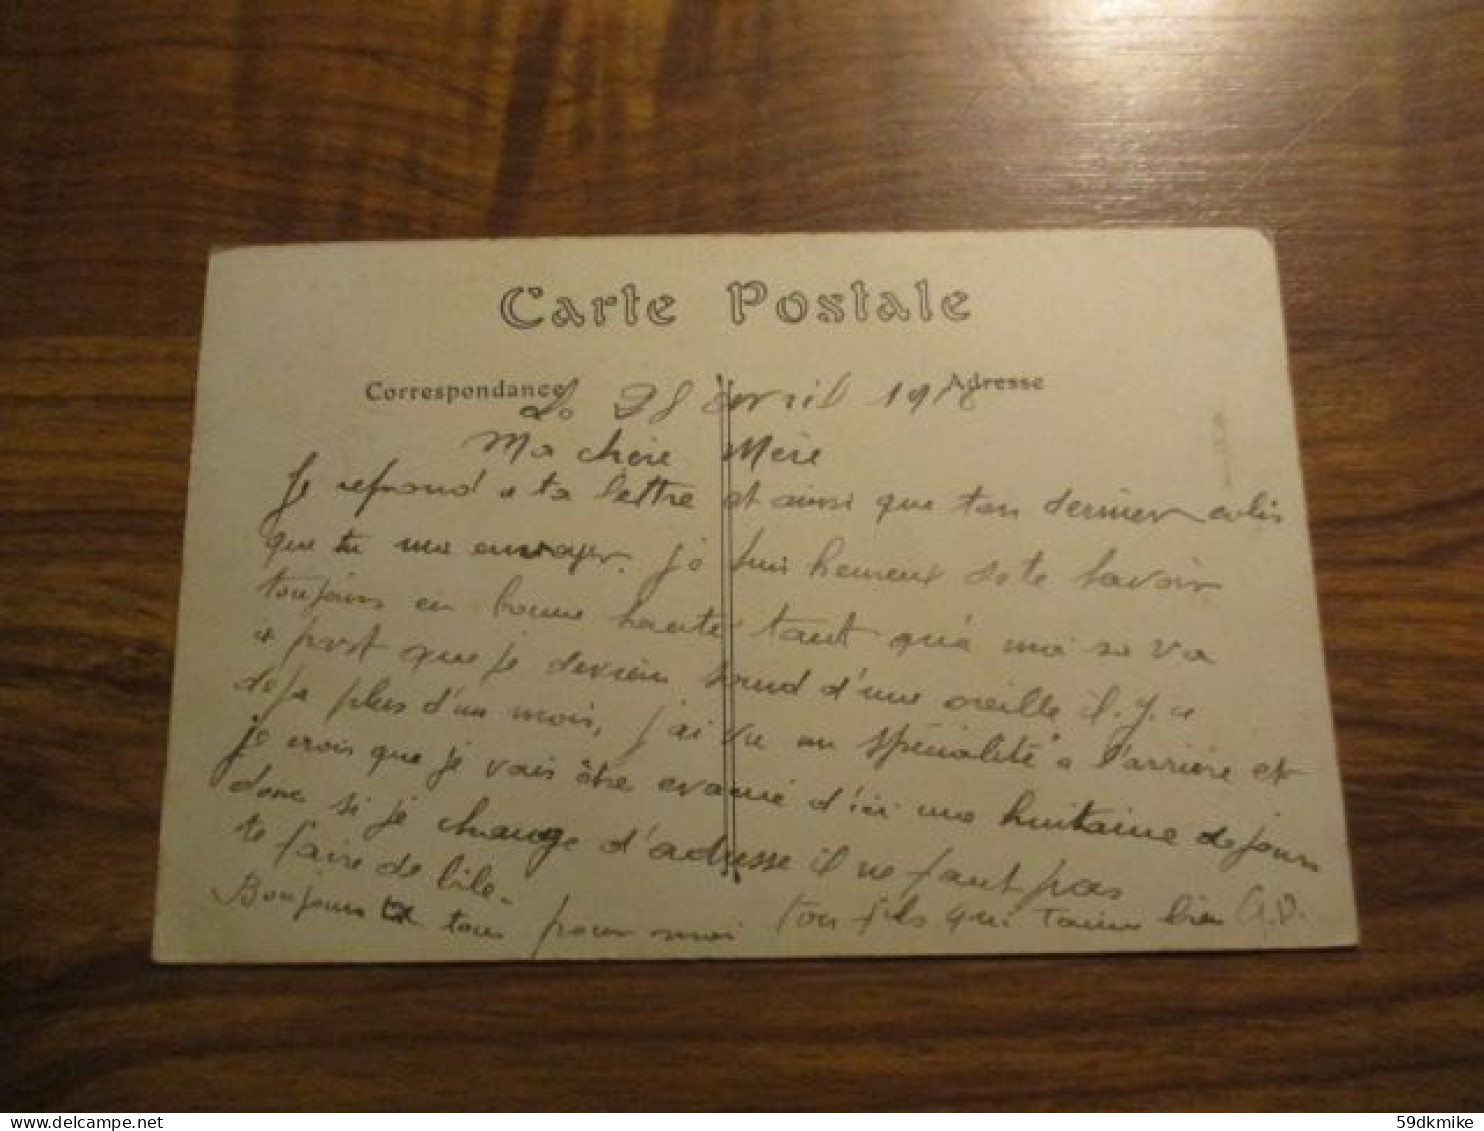 Carte Postale
Correspondance Adresse
Le 28 avril 191
Ma chère Mère
Je repond a ta lettre et ainsi que ton dernier colis
que tu ma envoyer. Je suis heureux de te savoir
toujours en bonne sante tant qu'a moi sa va
a part que je devien sourd d'une oreille il. y. a
deja plus d'un mois, j'ai vu un spécialité a l'arrière et
je crois que je vais être evacué d'ici une huitaine de jours
donc si je change d'adresse il ne faut pas
te faire de bile.
Bonjours a tous pour moi ton fils qui t'aime bien G.D.
59dkmike